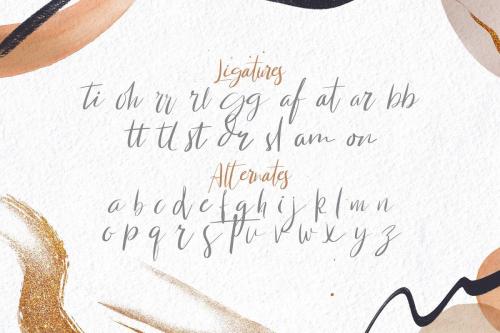 Ligatures
ti oh rr rl gg af at ar bb
tt tl st dr sl am on
Alternates
a b c d e f g h i j k l m n
o p q r s t u v w x y z